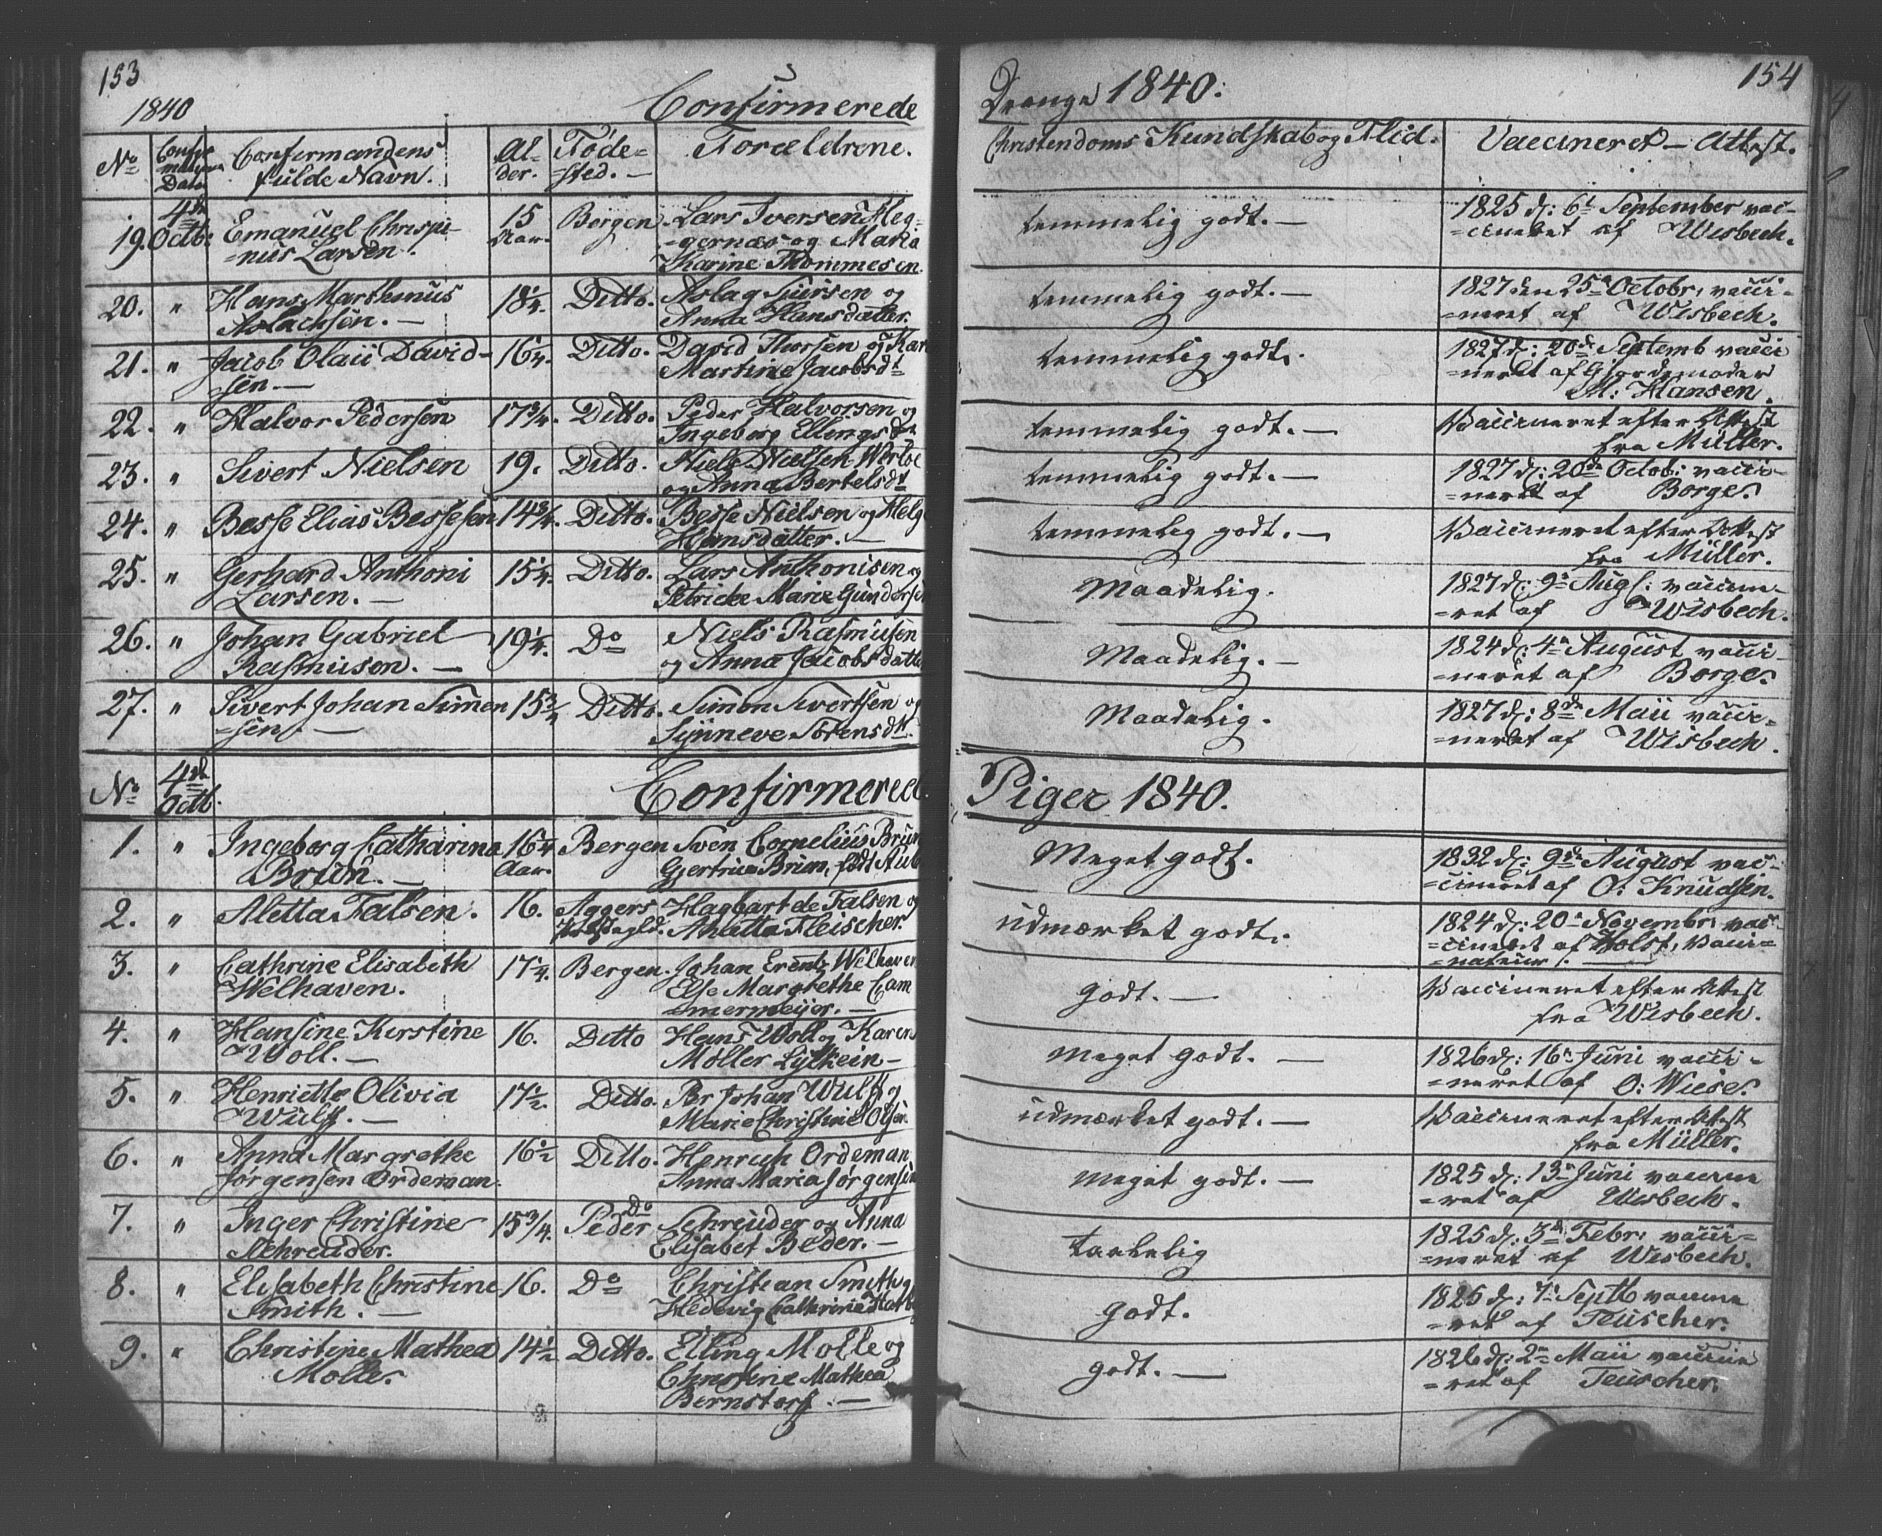 153
1840
Confirmerede
No
Confirmations Datum
Confirmandens fulde Navn.
Alder.
Fødested.
Forældrene.
19.
4de Octb:
Emanuel Chrispi=
=nus Larsen.
15 Aar.
Bergen
Lars Iversen Meg=
=gernæs og Maria
Karine Thommesen.
20.
"
Hans Marthinus
Aslachsen. —
18 1/4.
Ditto.
Aslag Siursen og
Anna Hansdatter.
21.
"
Jacob Olaii David=
sen. —
16 1/4.
Ditto.
David Thorsen og Kar
Martine Jacobsdt
22.
"
Halvor Pedersen
17 3/4.
Ditto.
Peder Halvorsen og
Ingeborg Ellingsdr
23.
"
Sivert Nielsen
19.
Ditto.
Niels Nielsen
og Anna Bertelsdt
24.
"
Besse Elias Bessesen
14 3/4.
Ditto.
Besse Nielsen og Helge
Hansdatter. —
25.
"
Gerhard Anthoni
Larsen. —
15 1/4.
Ditto.
Lars Anthonisen og
Petricke Marie Gundersen
26.
"
Johan Gabriel
Rasmusen. —
19 1/4.
Do
Niels Rasmusen
og Anna Jacobsdatte
27.
"
Sivert Johan Simen
=sen —
15 3/4
Ditto.
Simon Sivertsen og
Synneve Sørensdt.
No
4de Octb.
Confirmered
1.
"
Ingeborg Catharina
Bruun. —
16 1/4 Aar.
Bergen
Sven Cornelius Bruun
Gjertrue Bruun, født
2.
"
Aletta Falsen.
16.
Aggers
Hagbart de Falsen og
Anetta Fleischer.
3.
"
Cathrine Elisabeth
Welhaven.
17 1/4.
Bergen.
Johan Ernb. Welhaven
Else Margrethe Cam
mermeijer. —
4.
"
Hansine Kirstine
Woll. —
16.
Ditto
Hans Woll og Karen
Møller Lytkein —
5.
"
Henriette Olivia
Wulff. —
17 1/2.
Ditto.
Per Johan Wulff og
Marie Christine Olsen
6.
"
Anna Margrethe
Jørgensen Ordeman.
16 1/2
Ditto.
Henrich Ordeman
Anna Maria Jørgensen
7.
"
Inger Christine
Schreuder.
15 3/4.
Do
Peder Schreuder og Anna
Elisabet Beder. —
8.
"
Elisabeth Christine
Smith. —
16.
Do
Christian Smith og
Hedevig Cathrine
9.
"
Christine Mathea
Molle.
14 1/2
Ditto.
Elling Molle og
Christine Mathea
Bernstorf. —
154
Drenge 1840.
Christendoms Kundskab og Flid.
Vaccineret — Attest.
temmelig godt. —
1825 d: 6t September vac=
=cineret af Wisbech.
temmelig godt. —
1827 den 25de Octobr, vacci=
=neret af Wisbech.
temmelig godt.
1827 d: 20de Septemb vacci
=neret af Gjordemoder
M: Hansen.
temmelig godt. —
Vaccineret efter Attest
fra Müller.
temmelig godt. —
1827 d: 20de Octob: vacci=
=neret af Borge.
temmelig godt. —
Vaccineret efter Attest
fra Müller.
Maadelig.
1827 d: 9de Augs: vaccine=
=ret af Wisbech.
Maadelig. —
1824 d: 4de August vacci=
=neret af Borge.
Maadelig.
1827 d: 8de Maii vacci=
=neret af Wisbech.
Piger 1840.
Meget godt.
1832 d: 9de August vac=
=cineret af O: Knudsen.
udmærket godt.
1824 d: 20de Novembr: vac=
=cineret af Holst, Vacci=
=nateur. —
godt. —
Vaccineret efter Attest
fra Wisbech.
meget godt. —
1826 d: 16de Juni vacci=
=neret af O: Wiese.
udmærket godt. —
Vaccineret efter Attest
fra Müller.
meget godt. —
1825 d: 13de Juni vaccine
=ret af Wisbech.
taalelig
1825 d: 3de Febr: vacci=
=neret af Wisbech.
godt.
1825 d: 7de Septb vaccine
=ret af Teuscher.
godt. —
1826 d: 2den Maii vaccine
=ret af Teuscher.